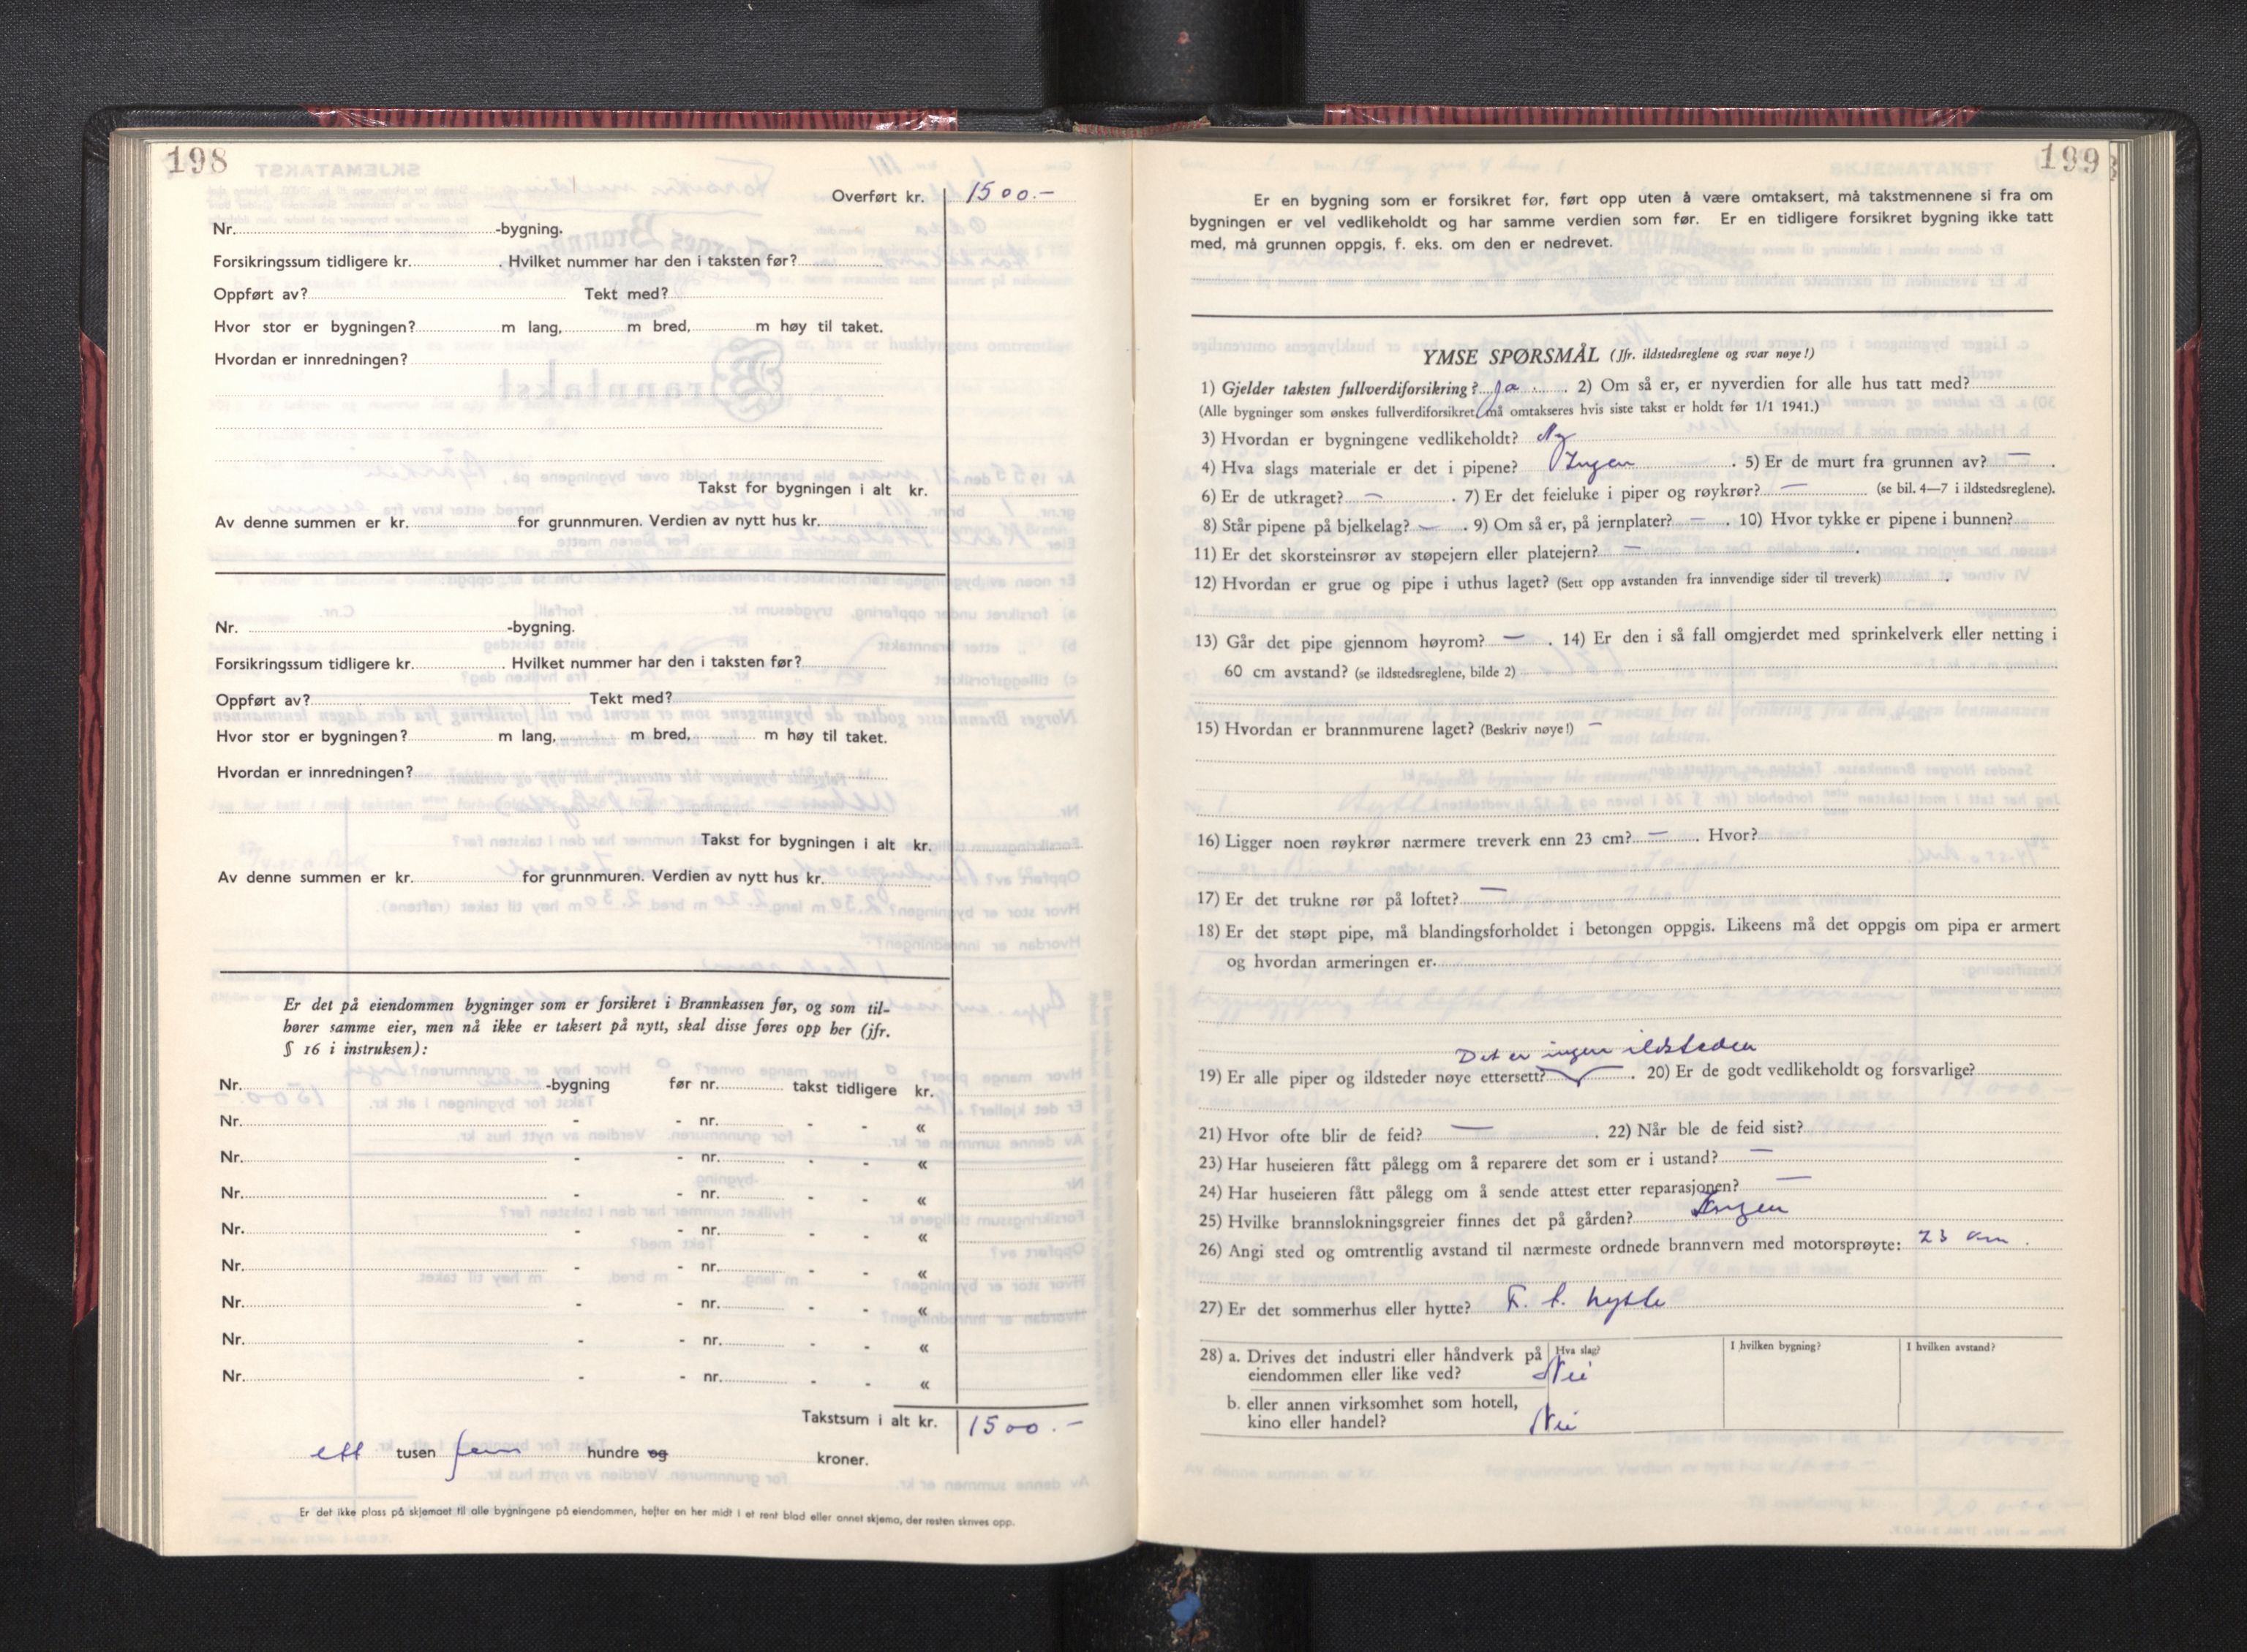 198
Overført kr. 1500.-
Nr. -bygning.
Forsikringssum tidligere kr. . Hvilket nummer har den i taksten før?
Oppført av? Tekt med?
Hvor stor er bygningen? m lang, m bred, m høy til taket.
Hvordan er innredningen?
Takst for bygningen i alt kr.
Av denne summen er kr. for grunnmuren. Verdien av nytt hus kr.
Nr. -bygning.
Forsikringssum tidligere kr. . Hvilket nummer har den i taksten før?
Oppført av? Tekt med?
Hvor stor er bygningen? m lang, m bred, m høy til taket.
Hvordan er innredningen?
Takst for bygningen i alt kr.
Av denne summen er kr. for grunnmuren. Verdien av nytt hus kr.
Er det på eiendommen bygninger som er forsikret i Brannkassen før, og som til-
hører samme eier, men nå ikke er taksert på nytt, skal disse føres opp her (jfr.
§ 16 i instruksen):
Nr. -bygning før nr. takst tidligere kr.
Nr. - - nr. - - «
Nr. - - nr. - - «
Nr. - - nr. - - «
Nr. - - nr. - - «
Nr. - - nr. - - «
Nr. - - nr. - - «
Nr. - - nr. - - «
Nr. - - nr. - - «
Takstsum i alt kr. 1500.-
ett tusen fem hundre og kroner.
Er det ikke plass på skjemaet til alle bygningene på eiendommen, hefter en her midt i et rent blad eller annet skjema, der resten skrives opp.
199
Er en bygning som er forsikret før, ført opp uten å være omtaksert, må takstmennene si fra om
bygningen er vel vedlikeholdt og har samme verdien som før. Er en tidligere forsikret bygning ikke tatt
med, må grunnen oppgis, f. eks. om den er nedrevet.
YMSE SPØRSMÅL (Jfr. ildstedsreglene og svar nøye!)
1) Gjelder taksten fullverdiforsikring? Ja . 2) Om så er, er nyverdien for alle hus tatt med?
(Alle bygninger som ønskes fullverdiforsikret, må omtakseres hvis siste takst er holdt før 1/1 1941.)
3) Hvordan er bygningene vedlikeholdt? Ny
4) Hva slags materiale er det i pipene? Ingen . 5) Er de murt fra grunnen av? — .
6) Er de utkraget? — . 7) Er det feieluke i piper og røykrør? — (se bil. 4—7 i ildstedsreglene).
8) Står pipene på bjelkelag? — . 9) Om så er, på jernplater? — . 10) Hvor tykke er pipene i bunnen?
11) Er det skorsteinsrør av støpejern eller platejern? — .
12) Hvordan er grue og pipe i uthus laget? (Sett opp avstanden fra innvendige sider til treverk) .
13) Går det pipe gjennom høyrom? — . 14) Er den i så fall omgjerdet med sprinkelverk eller netting i
60 cm avstand? (se ildstedsreglene, bilde 2)
15) Hvordan er brannmurene laget? (Beskriv nøye!) —
16) Ligger noen røykrør nærmere treverk enn 23 cm? — . Hvor?
17) Er det trukne rør på loftet? —
18) Er det støpt pipe, må blandingsforholdet i betongen oppgis. Likeens må det oppgis om pipa er armert
og hvordan armeringen er.
Det er ingen ildsteder
19) Er alle piper og ildsteder nøye ettersett? . 20) Er de godt vedlikeholdt og forsvarlige?
21) Hvor ofte blir de feid? — . 22) Når ble de feid sist?
23) Har huseieren fått pålegg om å reparere det som er i ustand? —
24) Har huseieren fått pålegg om å sende attest etter reparasjonen? —
25) Hvilke brannslokningsgreier finnes det på gården? Ingen
26) Angi sted og omtrentlig avstand til nærmeste ordnede brannvern med motorsprøyte: 23 km.
27) Er det sommerhus eller hytte? hytte
28) a. Drives det industri eller håndverk på Hva slag? I hvilken bygning? I hvilken avstand?
eiendommen eller like ved? Nei
b. eller annen virksomhet som hotell,
kino eller handel? Nei